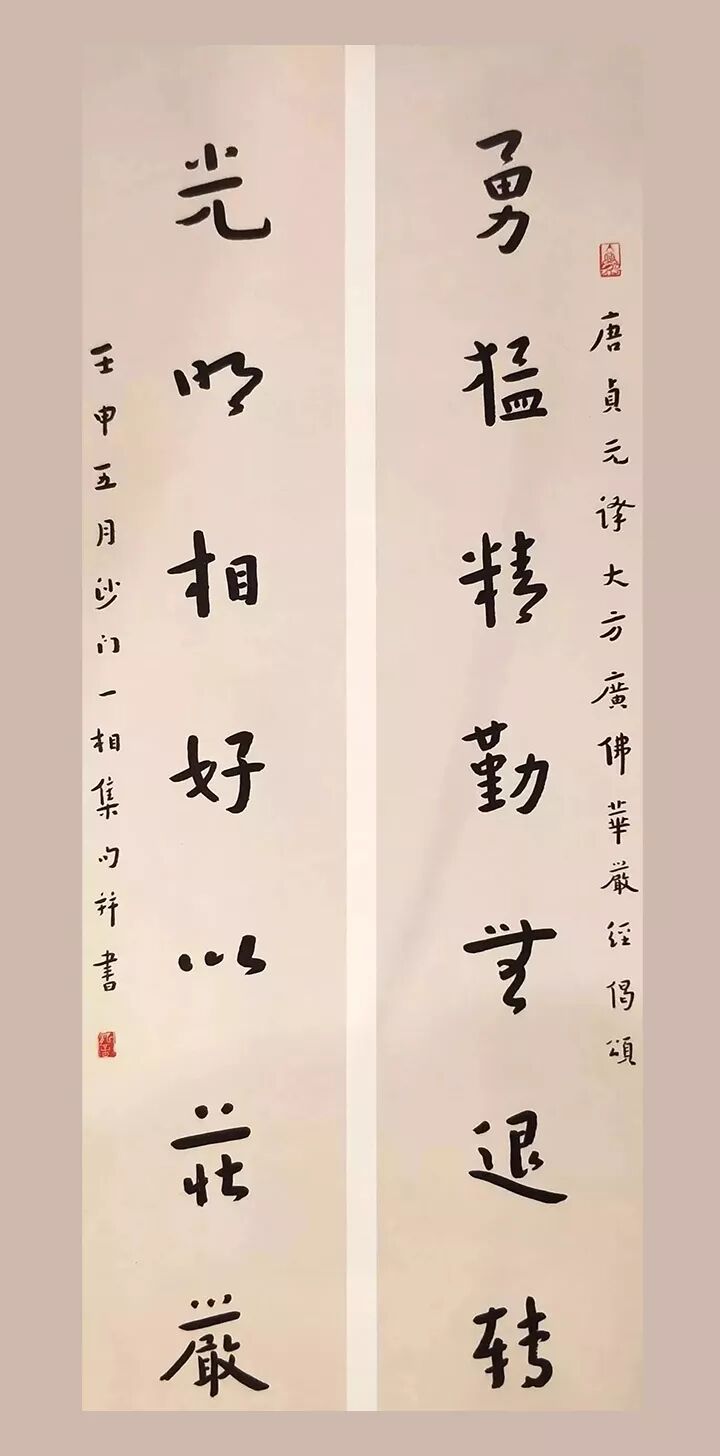 唐貞元译大方廣佛華嚴經偈頌
勇猛精勤無退转
光明相好以莊嚴
壬申五月沙门一相集句并書